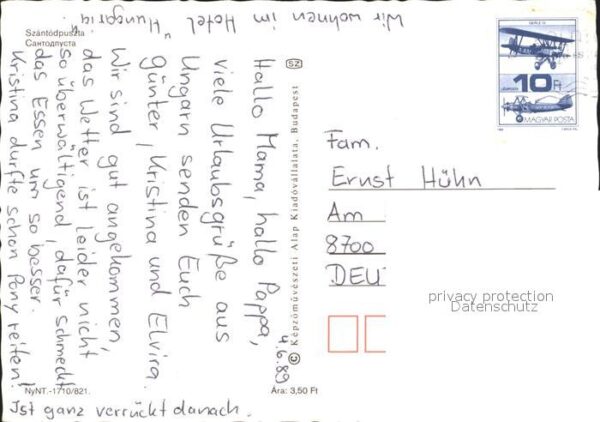 Szántódpuszta
Сантодпуста
4.6.89
Hallo Mama, hallo Pappa,
viele Urlaubsgrüße aus
Ungarn senden Euch
Günter, Kristina und Elvira.
Wir sind gut angekommen,
das Wetter ist leider nicht
so überwältigend, dafür schmeckt
das Essen um so besser.
Kristina durfte schon Pony reiten!
Ist ganz verrückt danach.
Wir wohnen im Hotel "Hungaria"
NyNT.-1710/821.
Ára: 3,50 Ft
SZ
© Képzőművészeti Alap Kiadóvállalata, Budapest
10 Ft
MAGYAR POSTA
Fam.
Ernst Hühn
Am
8700
DEU
privacy protection
Datenschutz